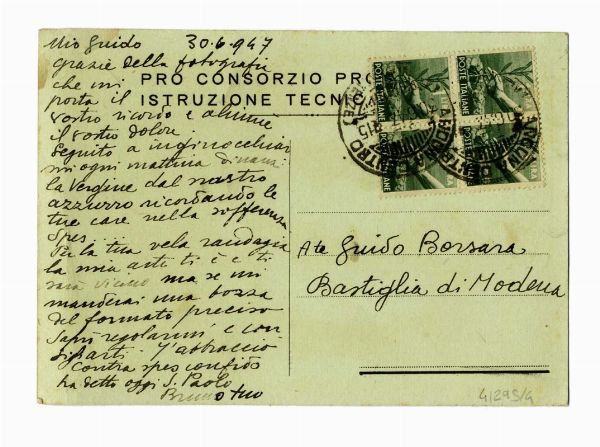 Mio Guido 30.6.947
grazie della fotografia
che mi
porta il
vostro ricordo e
il vostro dolore
Seguito a inginocchiar
mi ogni mattina dinanzi
la vergine dal nastro
azzurro ricordando le
tue care nella sofferenza
Spes...
Per la tua vela randagia
la mia arte ti è e ti
sarà vicino ma se mi
manderai una bozza
del formato preciso
saprò regolarmi e con
sigliarti. T'abbraccio
Contra spes confidò
ha detto oggi S. Paolo
Bruno tuo
PRO CONSORZIO PRO
ISTRUZIONE TECNI
POSTE ITALIANE
POSTE ITALIANE
1 LIRA
A te Guido Borsara
Bastiglia di Modena
41295/4